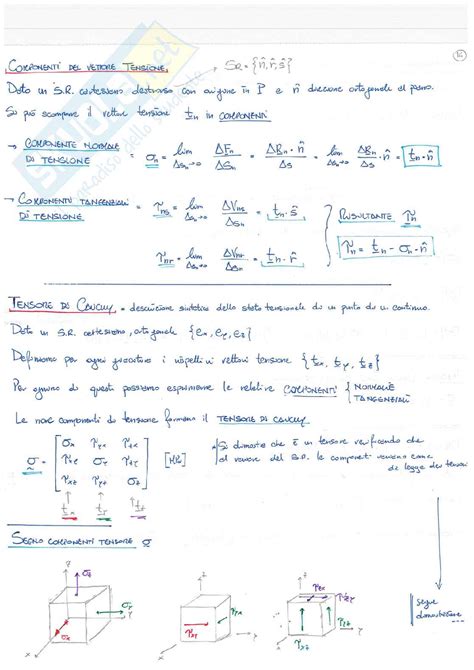 COMPONENTI DEL VETTORE TENSIONE → SR = {n̂, r̂, ŝ}
Dato un S.R. cartesiano destrorso con origine in P e n̂ direzione ortogonale al piano.
Si può scomporre il vettore tensione t̲n in COMPONENTI
→ COMPONENTE NORMALE DI TENSIONE = σn = lim ΔSn→0 ΔFn / ΔSn = ΔRn · n̂ / ΔS = lim ΔSn→0 ΔRn / ΔS · n̂ = t̲n · n̂
→ COMPONENTI TANGENZIALI DI TENSIONE
τns = lim ΔSn→0 ΔVns / ΔSn = t̲n · ŝ
τnr = lim ΔSn→0 ΔVnr / ΔSn = t̲n · r̂
RISULTANTE τ̲n
τ̲n = t̲n - σn · n̂
TENSORE DI CAUCHY = descrizione sintetica dello stato tensionale di un punto di un continuo.
Dato un S.R. cartesiano, ortogonale {ex, ey, ez}
Definiamo per ogni giacitura i rispettivi vettori tensione {t̲x, t̲y, t̲z}
Per ognuno di questi possiamo esprimerne le relative COMPONENTI { NORMALE TANGENZIALI
Le nove componenti di tensione formano il TENSORE DI CAUCHY
σ = [ σx τyx τzx
τxy σy τzy
τxz τyz σz ] [MPa]
t̲x t̲y t̲z
Si dimostra che è un tensore verificando che
al variare del S.R. le componenti variano come
da legge dei tensori
SEGNO COMPONENTI TENSORE σ
segue
dimostrazione
σz
σy
σx
z
y
x
τxz
τxy
τzx
τzy
τyz